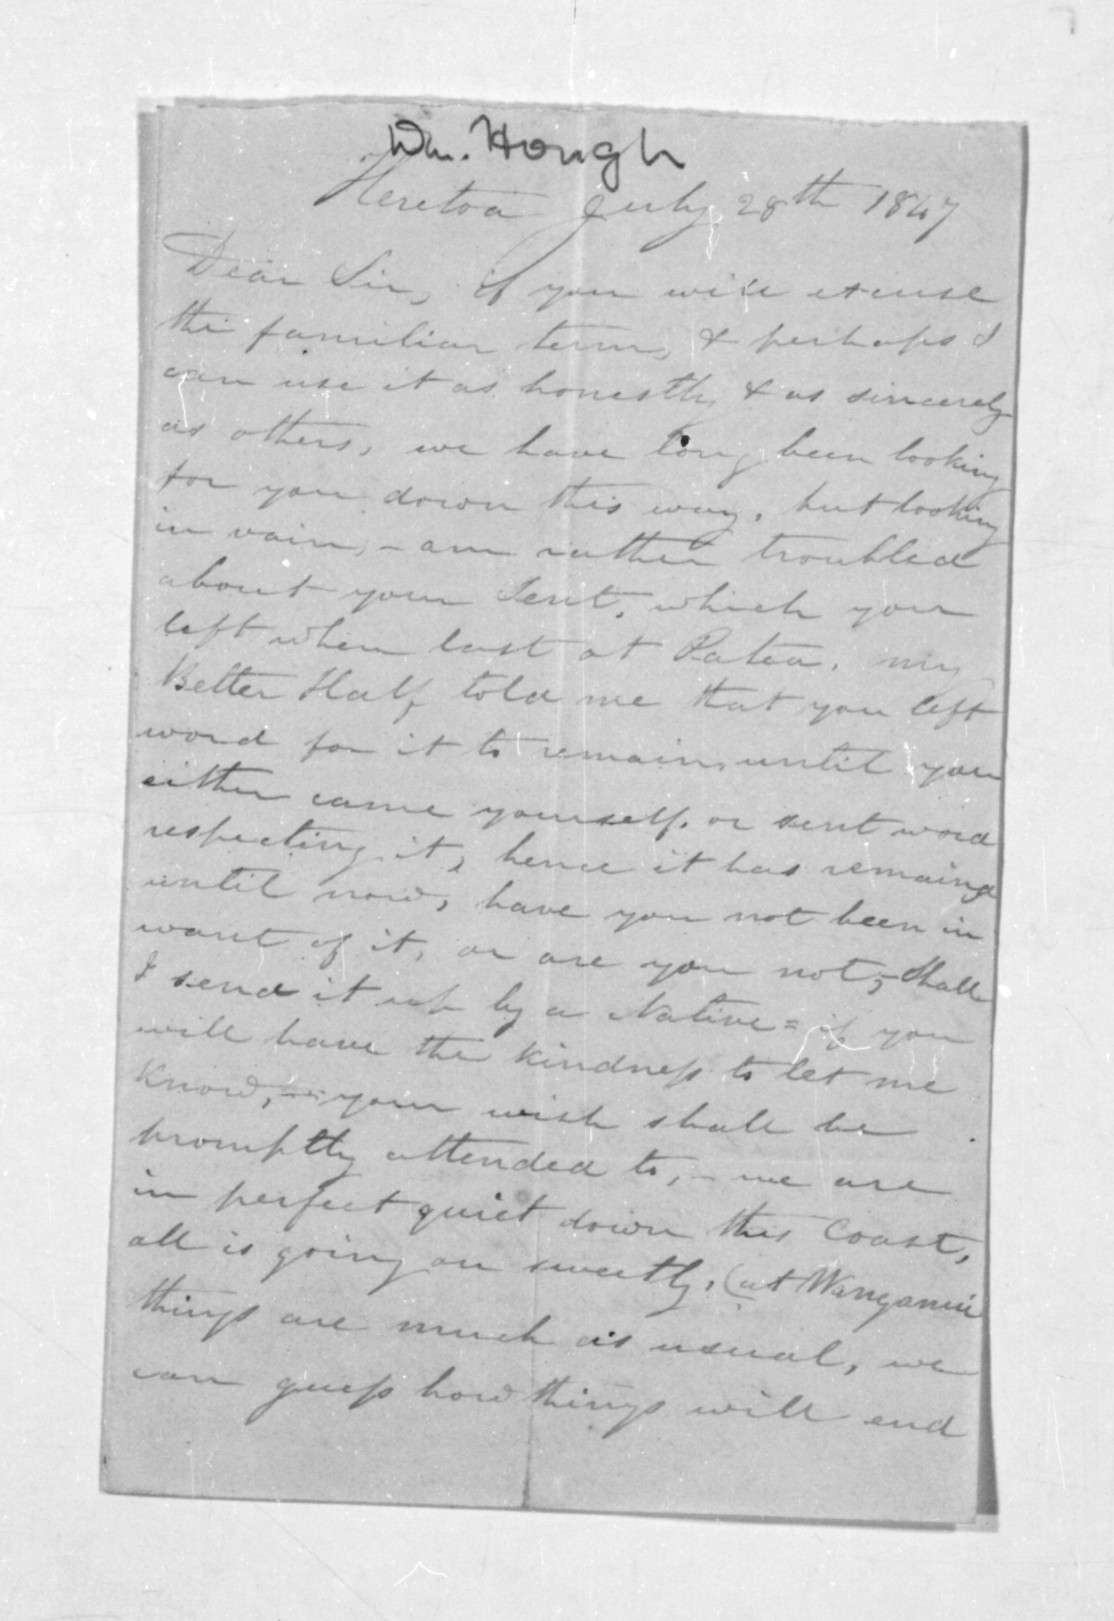 Wm. Hough
Heretoa July 28th 1847
Dear Sir, if you will excuse
the familiar term, & perhaps I
can use it as honestly & as sincerely
as others, we have long been looking
for you down this way, but looking
in vain, - am rather troubled
about your Tent, which you
left when last at Patea. my
Better Half told me that you left
word for it to remain until you
either came yourself. or sent word
respecting it, hence it has remaind
until now, have you not been in
want of it, or are you not, - Shall
I send it up by a Native = if you
will have the kindness to let me
know, - your wish shall be
promptly attended to, - we are
in perfect quiet down this Coast,
all is going on sweetly, (at Wanganui
things are much as usual, we
can guess how things will end